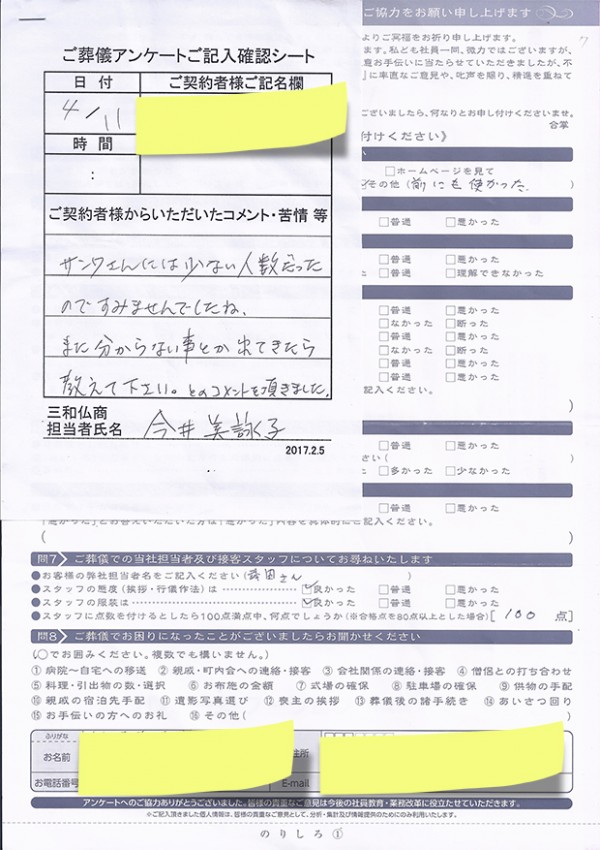 ご協力をお願い申し上げます
よりご冥福をお祈り申し上げます。
ます。私ども社員一同、微力ではございますが、
意お手伝いに当たらせていただきましたが、不
」に率直なご意見や、叱声を賜り、精進を重ねて
ございましたら、何なりとお申し付けくださいませ。
合掌
付けください》
□ホームページを見て
その他(前にも使かった
□普通 □悪かった
□普通 □悪かった
□普通 □理解できなかった
□普通 □悪かった
□なかった □断った
□普通 □悪かった
□なかった □断った
□普通 □悪かった
□普通 □悪かった
記入ください。
)
□普通 □悪かった
ださい(
□多かった □少なかった
□普通 □悪かった
ご葬儀アンケートご記入確認シート
日付 ご契約者様ご記名欄
4/11
時間
:
ご契約者様からいただいたコメント・苦情 等
サンワさんには少ない人数だった
のですみませんでしたね、
また分からない事とか出てきたら
教えて下さい。とのコメントを頂きました。
三和仏商
担当者氏名 今井 美詠子
2017.2.5
「悪かった」とお答えいただいた方は「悪かった」内容を具体的にご記入ください。
( )
問7 ご葬儀での当社担当者及び接客スタッフについてお尋ねいたします
●お客様の弊社担当者名をご記入ください( さん )
●スタッフの態度(挨拶・行儀作法)は ☑良かった □普通 □悪かった
●スタッフの服装は ☑良かった □普通 □悪かった
●スタッフに点数を付けるとしたら100点満点中、何点でしょうか(※合格点を80点以上とした場合)[ 100 点]
問8 ご葬儀でお困りになったことがございましたらお聞かせください
(○でお囲みください。複数でも構いません。)
①病院〜自宅への移送 ②親戚・町内会への連絡・接客 ③会社関係の連絡・接客 ④僧侶との打ち合わせ
⑤料理・引出物の数・選択 ⑥お布施の金額 ⑦式場の確保 ⑧駐車場の確保 ⑨供物の手配
⑩親戚の宿泊先手配 ⑪遺影写真選び ⑫喪主の挨拶 ⑬葬儀後の諸手続き ⑭あいさつ回り
⑮お手伝いの方へのお礼 ⑯その他( )
ふりがな
お名前 住所
お電話番号 E-mail
アンケートへのご協力ありがとうございました。皆様の貴重なご意見は今後の社員教育・業務改革に役立たせていただきます。
※ご記入頂きました個人情報は、皆様の貴重なご意見として、分析・集計及び情報提供のためにのみ利用いたします。
のりしろ①